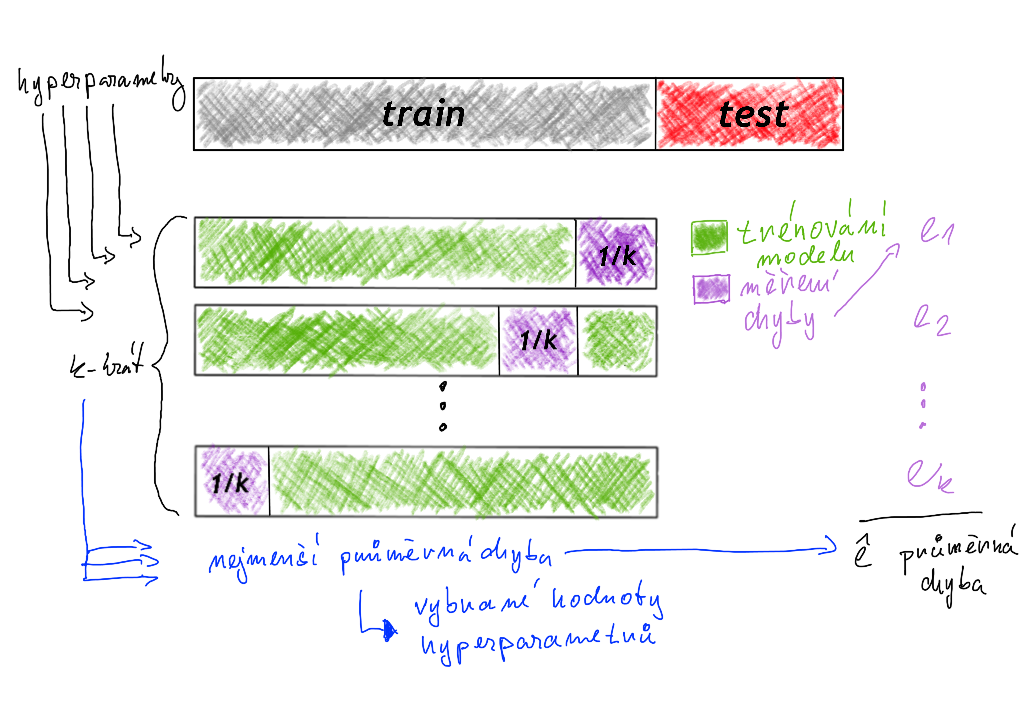 hyperparametry
train
test
1/k
trénování
modelu
měření
chyby
e1
1/k
e2
k-krát
1/k
ek
nejmenší průměrná chyba
ê průměrná
chyba
vybrané hodnoty
hyperparametrů